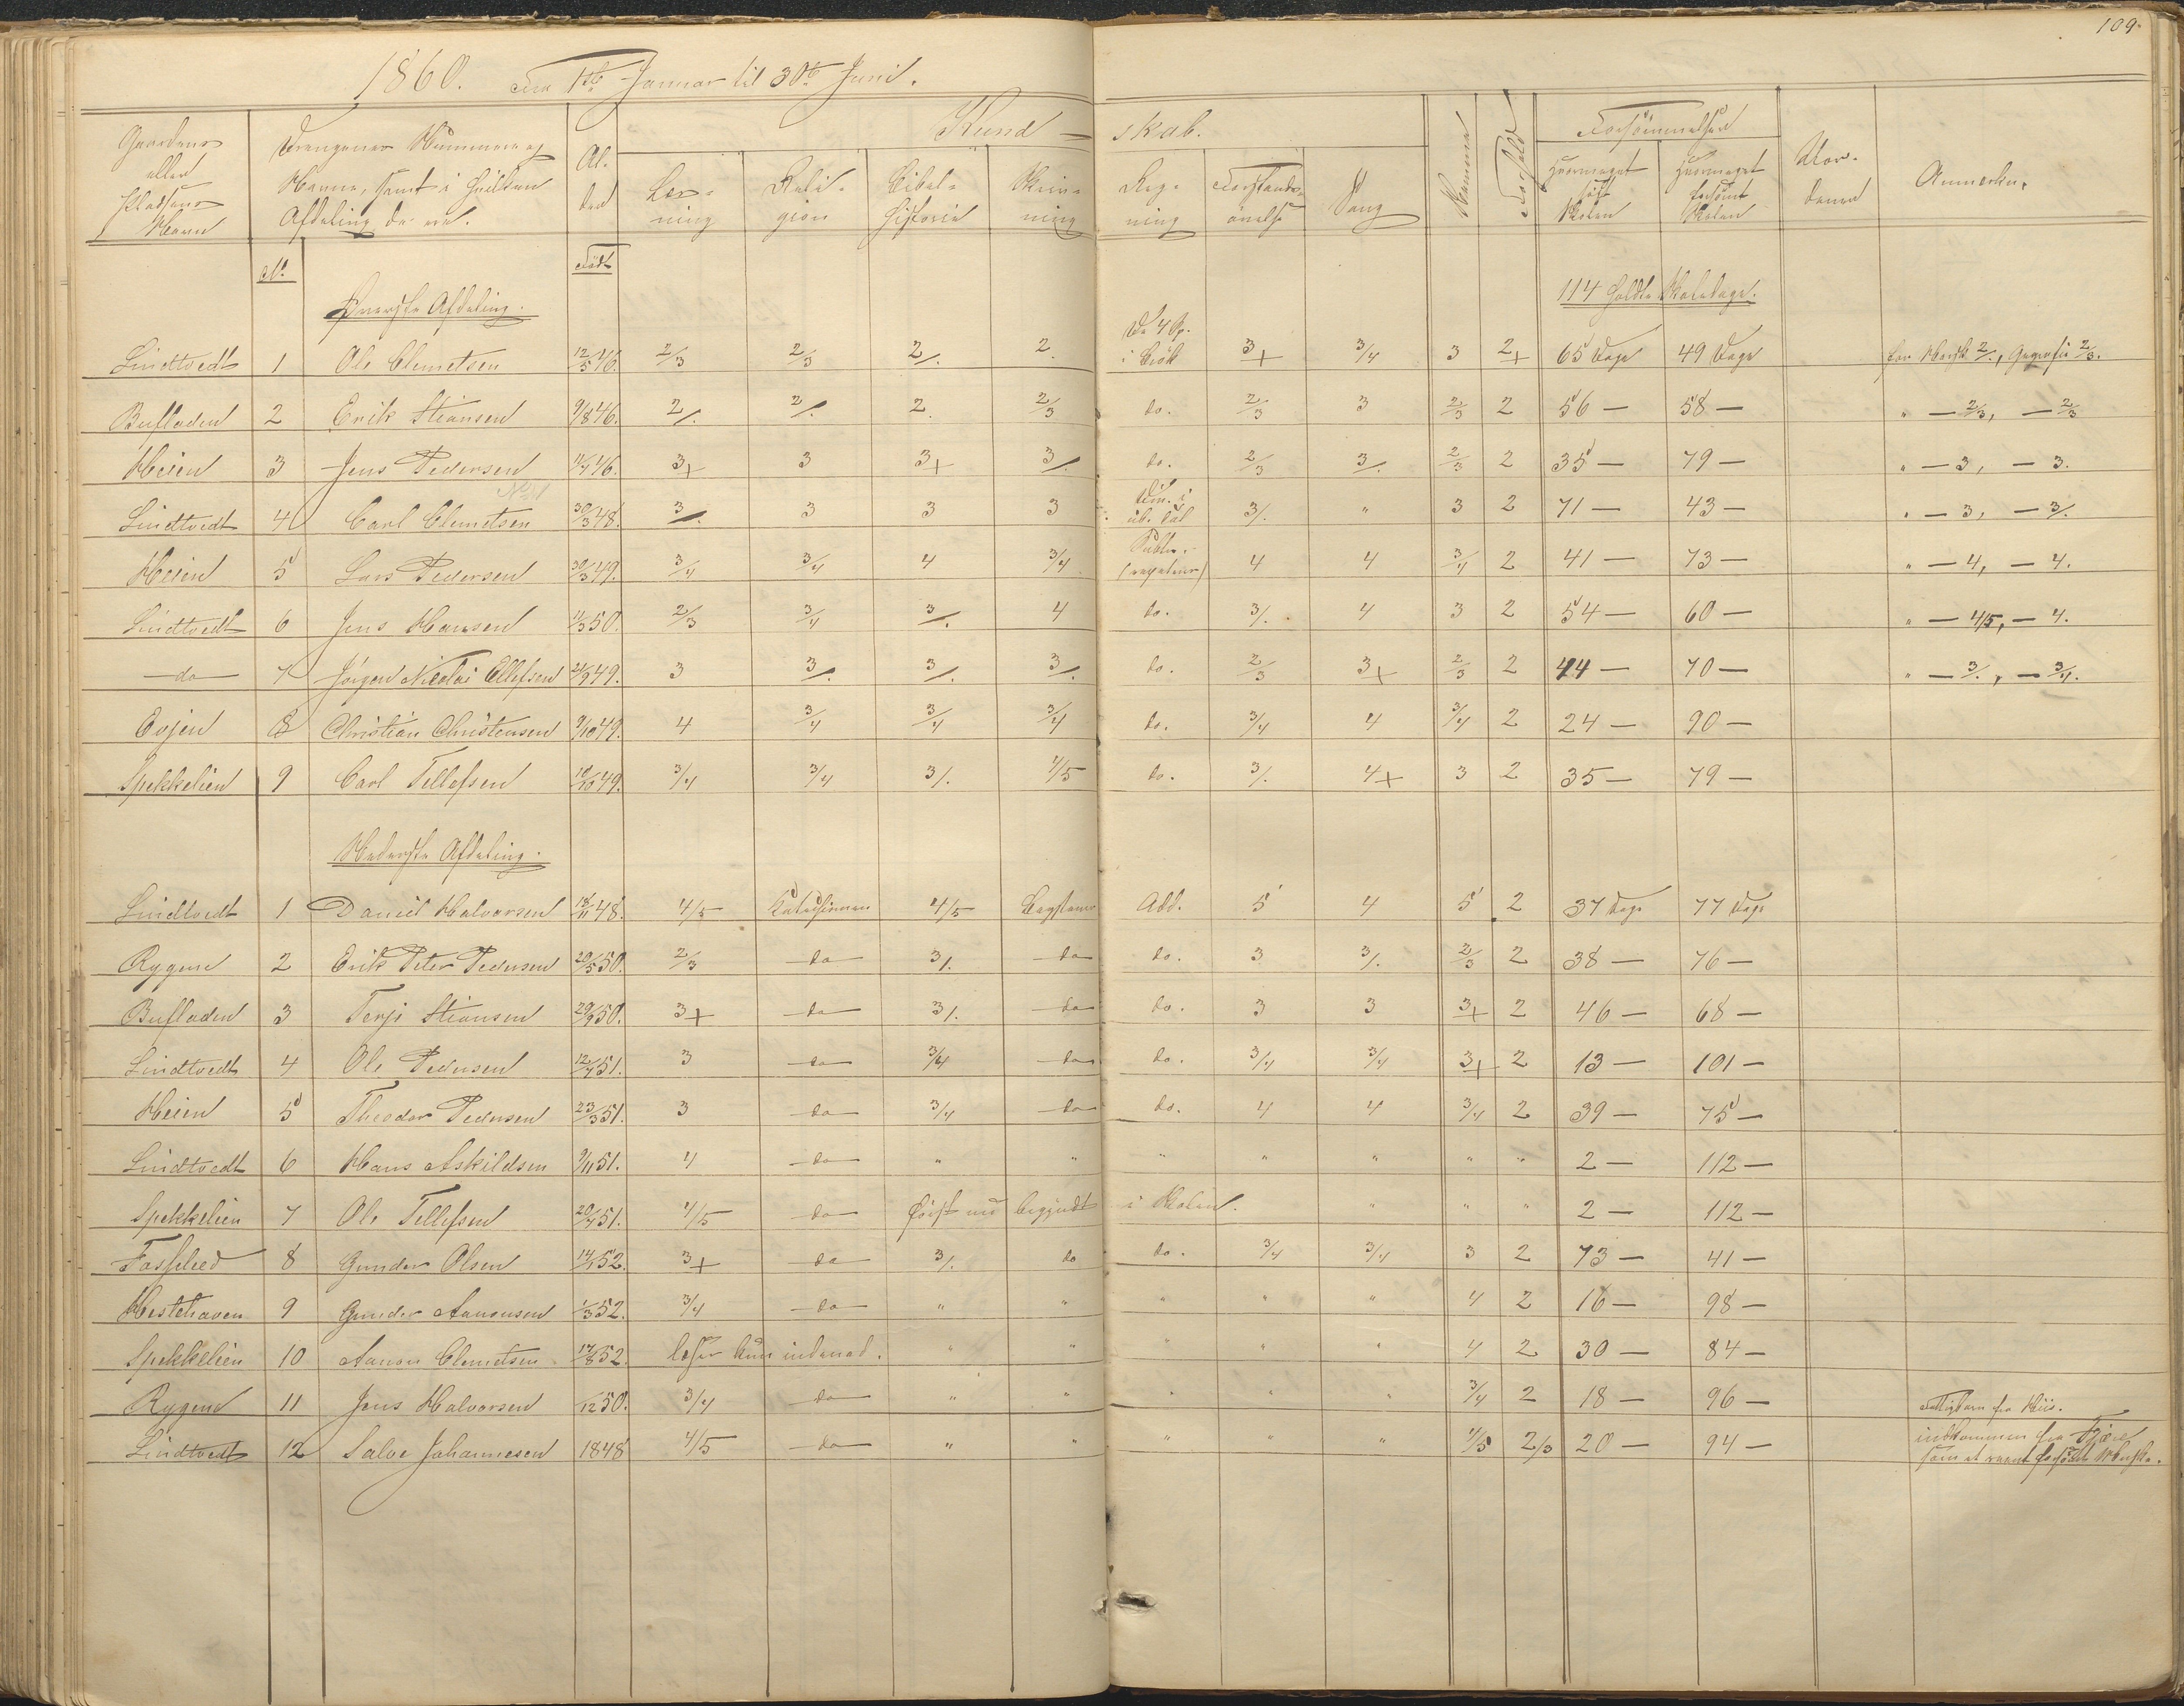 109.
1860. Fra 1ste Januar til 30te Juni.
Gaardens eller Pladsens Navn | Drengenes Nummer og Navne, samt i hvilken Afdeling de ere. | Alder | Kundskab. | Forhold | Forsømmelser | Anmærkn.
Læsning | Religion | Bibelhistorie | Skrivning | Regning | Forstandsøvelse | Sang | hvormeget søgt Skolen | hvormeget forsømt Skolen
No | Født
Øverste Afdeling. | 114 holdte Skoledage.
Lindtvedt 1 Ole Clemetsen 12/5 46. 2/3 2/3 2/. 2. De 4 Sp. i Brök 3+ 3/4 3 2+ 65 Dage 49 Dage 2/., Geografie 2/3.
Bufladen 2 Erik Stiansen 9/8 46. 2/. 2/. 2. 2/3 do. 2/3 3 2/3 2 56 — 58 — " — 2/3, — 2/3
Heien 3 Jens Pedersen 46. 3+ 3 3+ 3/. do. 2/3 3/. 2/3 2 35 — 79 — " — 3, — 3.
Lindtvedt 4 Carl Clemetsen 30/3 48. 3/. 3 3 3 3/. " 3 2 71 — 43 — " — 3, — 3/.
Heien 5 Lars Pedersen 30/3 49. 3/4 3/4 4 3/4 Subtr. (repeterer) 4 4 3/4 2 41 — 73 — " — 4, — 4.
Lindtvedt 6 Jens Hansen 11/3 50. 2/3 3/4 3/. 4 do. 3/. 4 3 2 54 — 60 — " — 4/5, — 4.
— do — 7 Jörgen Nicolai Ellefsen 21/9 49. 3 3/. 3/. 3/. do. 2/3 3+ 2/3 2 44 — 70 — " — 3/., — 3/4.
Evjen 8 Christian Christensen 9/10 49. 4 3/4 3/4 3/4 do. 3/4 4 3/4 2 24 — 90 —
Spekkelien 9 Carl Tellefsen 10/10 49. 3/4 3/4 3/. 4/5 do. 3/. 4+ 3 2 35 — 79 —
Nederste Afdeling.
Lindtvedt 1 Daniel Halvorsen 18/11 48. 4/5 Katechismen 4/5 Bogstaver Add. 5 4 5 2 37 Dage 77 Dage
Rygene 2 Erik Peter Pedersen 20/5 50. 2/3 — do — 3/. — do — do. 3 3/. 2/3 2 38 — 76 —
Bufladen 3 Terje Stiansen 29/9 50. 3+ — do — 3/. — do — do. 3 3 3+ 2 46 — 68 —
Lindtvedt 4 Ole Pedersen 12/4 51. 3 — do — 3/4 — do — do. 3/4 3/4 3+ 2 13 — 101 —
Heien 5 Theodor Pedersen 23/3 51. 3 — do — 3/4 — do — do. 4 4 3/4 2 39 — 75 —
Lindtvedt 6 Hans Askildsen 9/11 51. 4 — do — " " " " " " " 2 — 112 —
Spekkelien 7 Ole Tellefsen 20/4 51. 4/5 — do — först nu begyndt i Skolen. " " " 2 — 112 —
Fosselied 8 Gunder Olsen 14/1 52. 3+ — do — 3/. do do. 3/4 3/4 3 2 73 — 41 —
Hestehaven 9 Gunder Aanonsen 1/3 52. 3/4 — do — " " " " " 4 2 16 — 98 —
Spekkelien 10 Aanon Clemetsen 17/8 52. læser kun indenad. " " " " " 4 2 30 — 84 —
Rygene 11 Jens Halvorsen 1/12 50. 3/4 — do — " " " " " 3/4 2 18 — 96 — Fattigbarn fra Hiis.
Lindtvedt 12 Salve Johannesen 1848 4/5 — do — " " " " " 4/5 2/3 20 — 94 — indkommen fra Fjære
som et svært forsömt